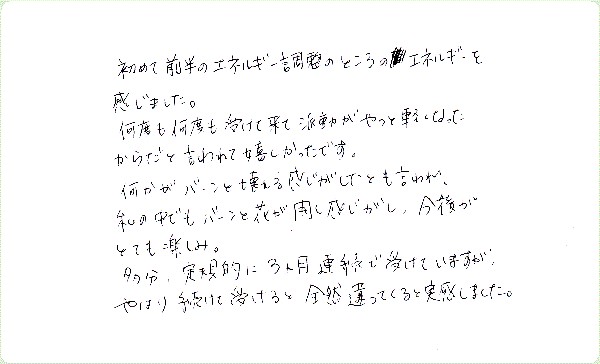 初めて前半のエネルギー調整のところのエネルギーを
感じました。
何度も何度も受けて来て波動がやっと軽くなった
からだと言われて嬉しかったです。
何かがバーンと壊れる感じがしたとも言われ、
私の中でもバーンと花が開く感じがし、今後が
とても楽しみ。
多分、定期的に3ヶ月連続で受けていますが、
やはり続けて受けると全然違ってくると実感しました。